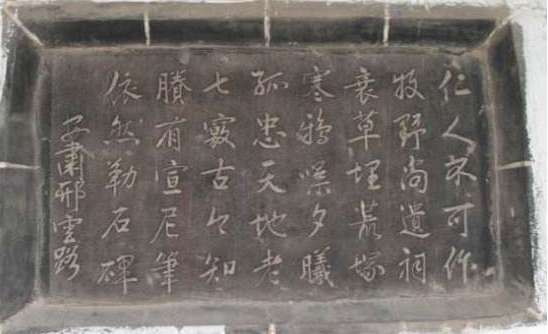 仁人不可作
牧野尚遺祠
衰草埋荒塚
寒鴉噪夕曦
孤忠天地老
七竅古今知
賸有宣尼筆
依然勒石碑
安肅邢雲路